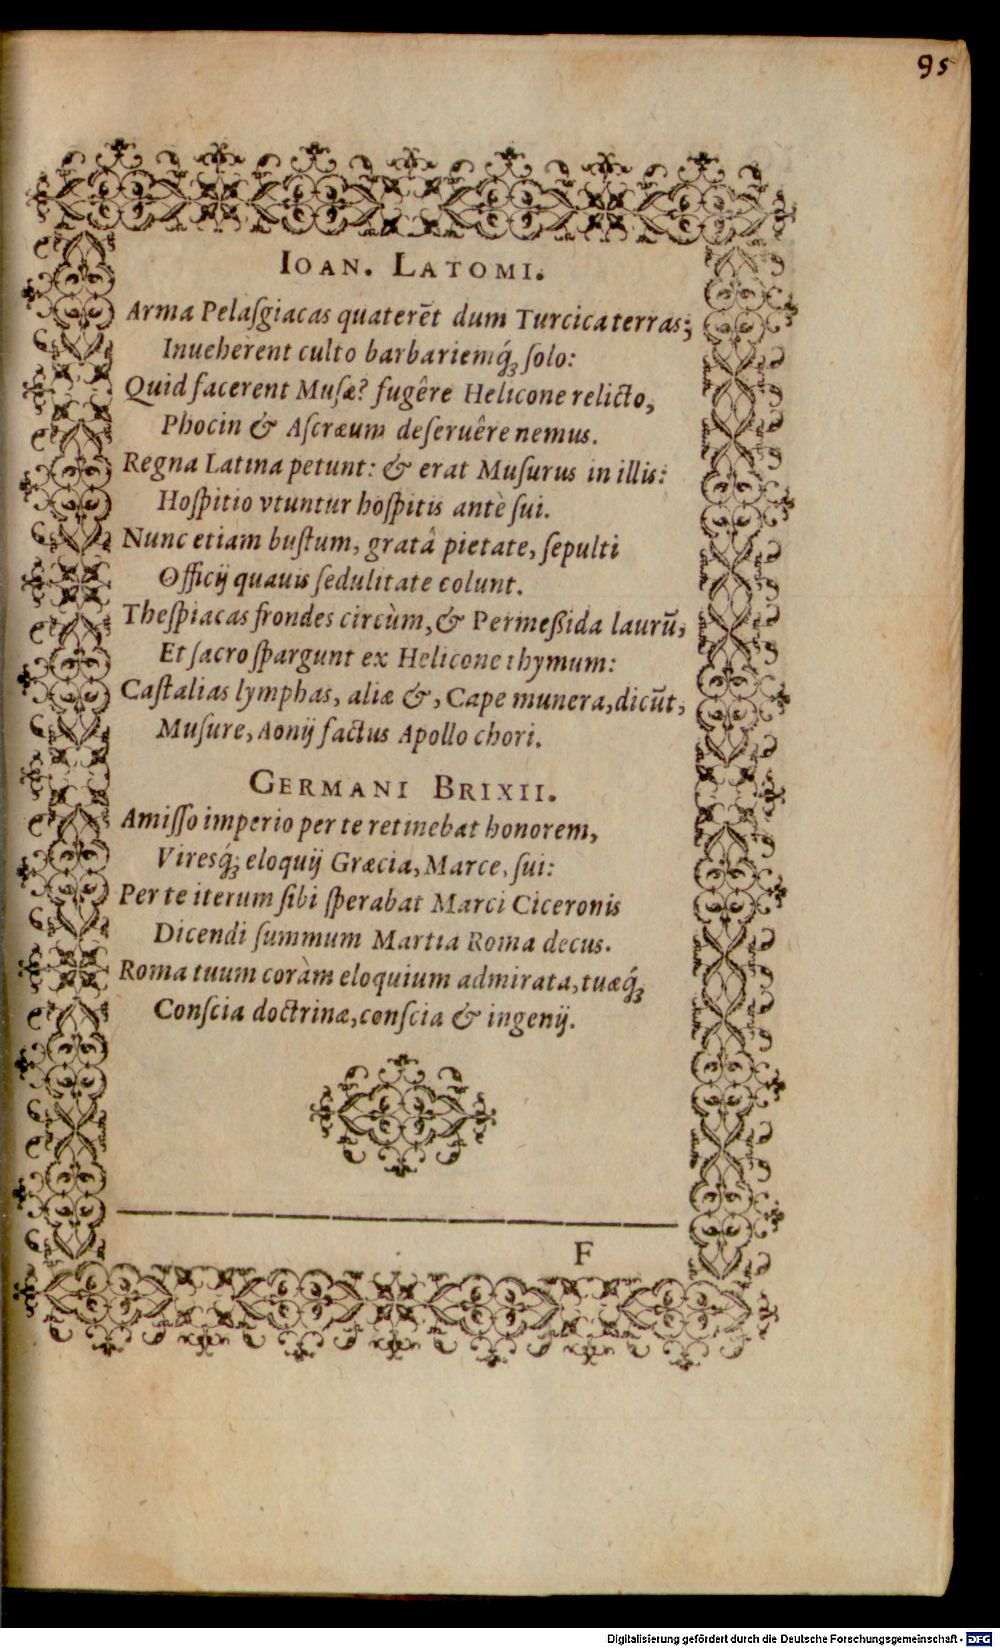 95
IOAN. LATOMI.
Arma Pelaſgiacas quaterēt dum Turcica terras;
Inueherent culto barbariemq́ꝫ ſolo:
Quid facerent Muſæ? fugêre Helicone relicto,
Phocin & Aſcræum deſeruêre nemus.
Regna Latina petunt: & erat Muſurus in illis:
Hoſpitio vtuntur hoſpitis antè ſui.
Nunc etiam buſtum, gratâ pietate, ſepulti
Officij quauis ſedulitate colunt.
Theſpiacas frondes circùm, & Permeßida laurū,
Et ſacro ſpargunt ex Helicone thymum:
Caſtalias lymphas, aliæ &, Cape munera, dicūt,
Muſure, Aonij factus Apollo chori.
GERMANI BRIXII.
Amiſſo imperio per te retinebat honorem,
Viresq́ꝫ eloquij Græcia, Marce, ſui:
Per te iterum ſibi ſperabat Marci Ciceronis
Dicendi ſummum Martia Roma decus.
Roma tuum coràm eloquium admirata, tuæq́ꝫ
Conſcia doctrinæ, conſcia & ingenij.
F
Digitalisierung gefördert durch die Deutsche Forschungsgemeinschaft - DFG